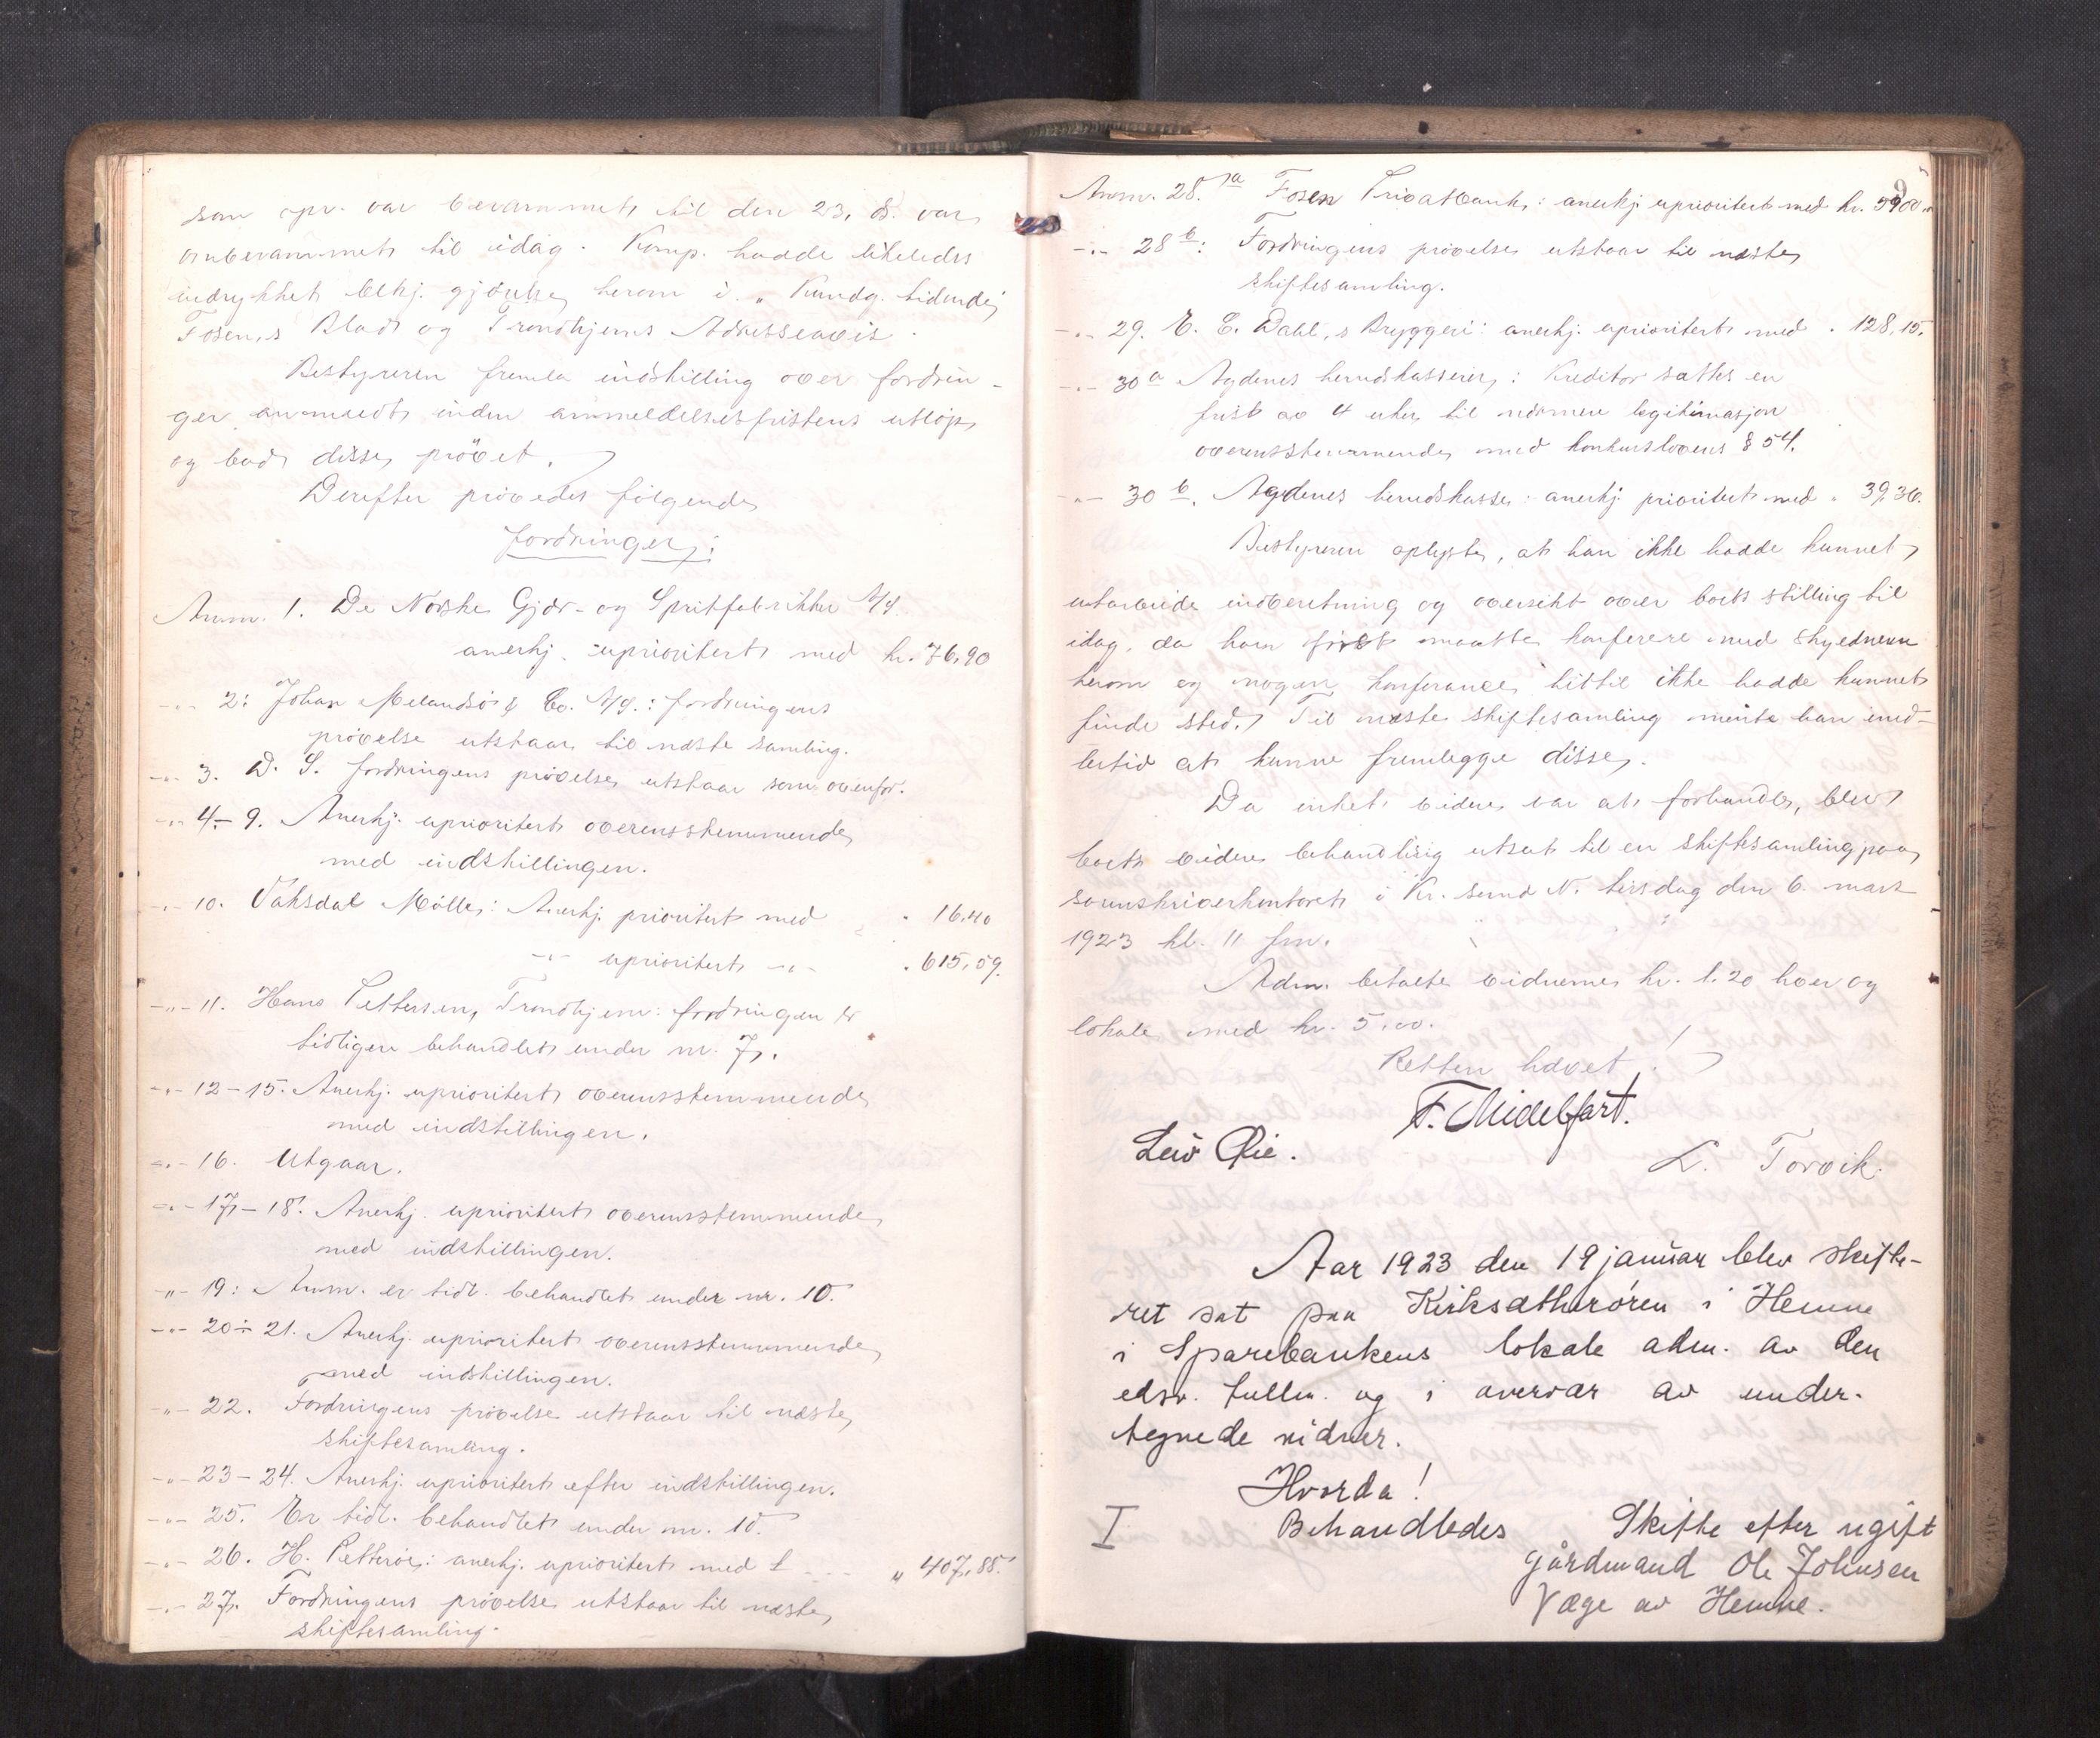 som opr. var berammet til den 23. ds. var
omberammet til idag. Komp. hadde likeledes
indrykket bekj. gjørelse herom i "Kundg. tidende",
Fosen,s Blad og Trondhjems Adresseavis.
Bestyreren fremla indstilling over fordrin-
ger anmeldt inden anmeldelsesfristens utløp
og bad disse prøvet.
Derefter prøvedes følgende
Fordringer:
Anm. 1. De Norske Gjær- og Spritfabrikker A/S.
anerkj. uprioritert med kr. 76,90
-"- 2: Johan Melandsø & Co. A/S.: fordringens
prøvelse utstaar til næste samling.
-"- 3. D. S. fordringens prøvelse utstaar som ovenfor.
-"- 4-9. Anerkj. uprioritert overensstemmende
med indstillingen.
-"- 10. Vaksdal Mølle: Anerkj. prioritert med " 16.40
-"- uprioritert -"- " 615,59.
-"- 11. Hans Pettersen, Trondhjem: fordringen er
tidligere behandlet under nr. 7.
-"- 12-15. Anerkj. uprioritert overensstemmende
med indstillingen.
-"- 16. Utgaar.
-"- 17-18. Anerkj. uprioritert overensstemmende
med indstillingen.
-"- 19: Anm. er tidl. behandlet under nr. 10.
-"- 20-21. Anerkj. uprioritert overensstemmende
med indstillingen.
-"- 22. Fordringens prøvelse utstaar til næste
skiftesamling.
-"- 23-24. Anerkj. uprioritert efter indstillingen.
-"- 25. Er tidl. behandlet under nr. 10.
-"- 26. H. Petterøe: anerkj. uprioritert med " 407,88.
-"- 27. Fordringens prøvelse utstaar til næste
skiftesamling.
9
Anm. 28. a Fosen Privatbank: anerkj uprioritert med kr.
-"- 28 b: Fordringens prøvelse utstaar til næste
skiftesamling.
-"- 29. E. C. Dahl,s Bryggeri: anerkj. uprioritert med " 128,15.
-"- 30 a Agdenes herredskasserer: Kreditor sattes en
frist av 4 uker til nærmere legitimasjon
overensstemmende med konkurslovens § 54.
-"- 30 b. Agdenes herredskasse: anerkj. prioritert med " 39,36.
Bestyreren oplyste, at han ikke hadde kunnet
utarbeide indberetning og oversikt over boets stilling til
idag, da han først maatte konferere med skyldneren
herom og nogen konferance hittil ikke hadde kunnet
finde sted. Til næste skiftesamling mente han imid-
lertid at kunne fremlegge disse.
Da intet videre var at forhandle, blev
boets videre behandling utsat til en skiftesamling paa
sorenskriverkontoret i Kr.sund N. tirsdag den 6. mars
1923 kl. 11 fm.
Adm. betalte vidnerne kr. 1.20 hver og
lokale med kr. 5.00.
Retten hævet!
F. Midelfart.
Leiv Øie.
L. Torvik.
Aar 1923 den 19 januar blev skifte-
ret sat paa Kirksætherøren i Hemne
i Sparebankens lokale adm. av den
edsv. fullm. og i overvær av under-
tegnede vidner.
Hvorda!
I Behandledes Skifte efter ugift
gårdmand Ole Johnsen
Væge av Hemne.